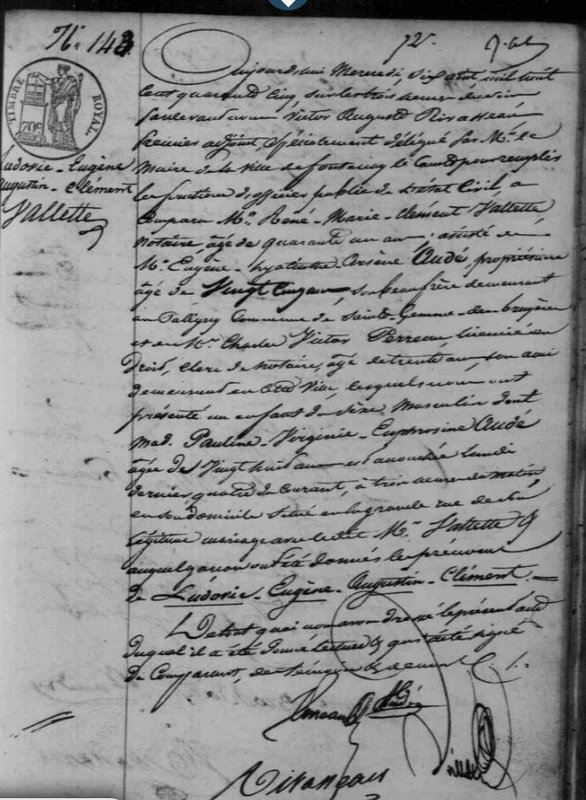 N° 143
TIMBRE ROYAL
70c
Ludovic-Eugène
Augustin-Clément
Vallette
Aujourd'hui Mercredi, six août mil huit
cent quarante cinq sur les trois heures du soir
pardevant nous Victor Auguste
Premier adjoint spécialement délégué par Mr le
Maire de la ville de fontenay le Comte pour remplir
les fonctions d'officier public de l'état Civil, a
Comparu Mr. René-Marie-Clément Vallette,
notaire âgé de quarante un ans, assisté de
Mr. Eugène-hyacinthe Arsène Audé, propriétaire
âgé de Vingt cinq ans, son beau frère demeurant
à Commune de Sainte Gemme-des bruyères
et de Mr. Charles Victor Perreau, licencié en
Droit, Clerc de Notaire, âgé de trente ans son ami
demeurant en Cette Ville, lesquels nous ont
présenté un enfant du Sexe Masculin dont
Mad. Pauline-Virginie-Euphrosine Audé
âgée de Vingt huit ans est accouchée Lundi
dernier, quatre du courant, à trois heures du matin,
en son domicile situé en la grande rue de son
légitime mariage avec le dit Mr. Vallette &
auquel garçon ont été donnés les prénoms
de Ludovic-Eugène-Augustin-Clément.
De tout quoi nous avons dressé le présent acte
duquel il a été donné lecture & qui a été signé
du Comparant, des témoins & de nous
Perreau